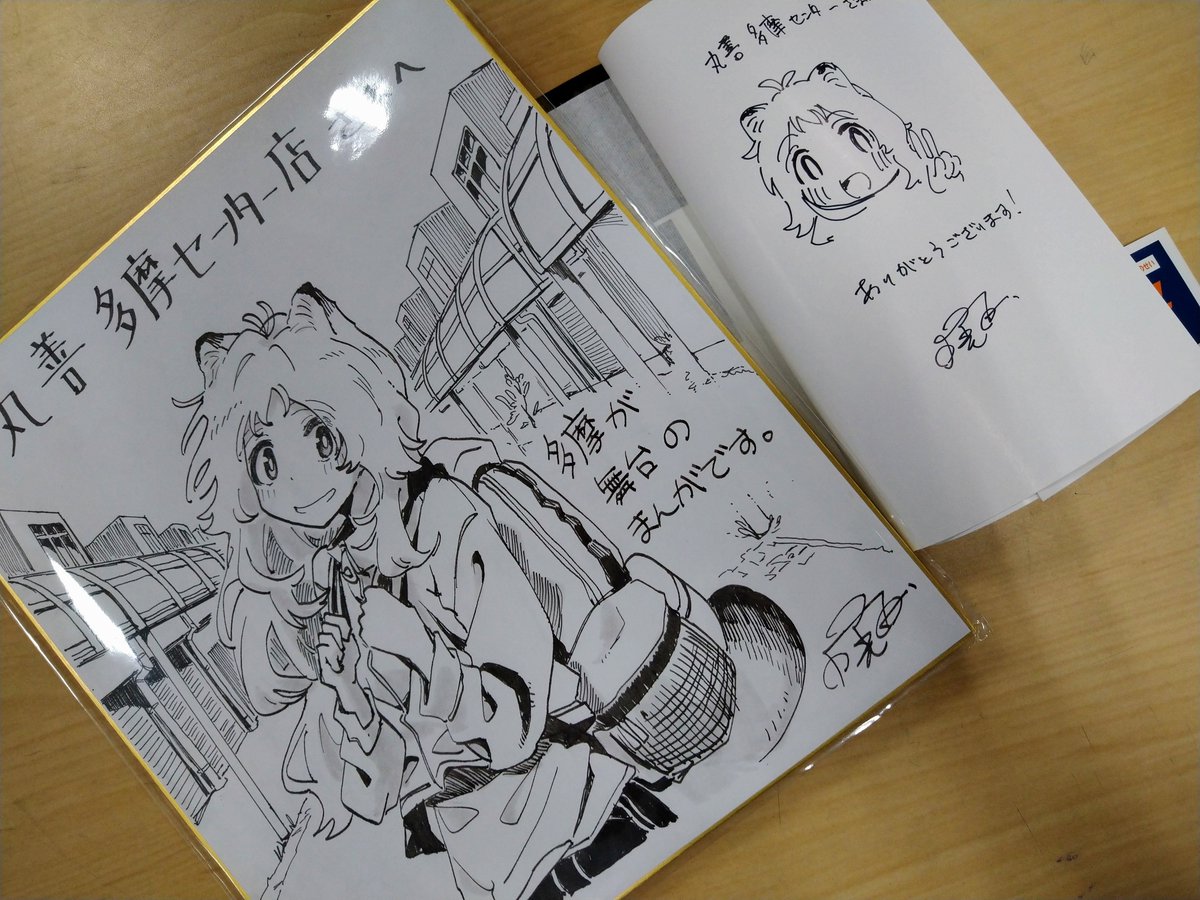 丸善 多摩センター店さんへ
多摩が
舞台の
まんがです。
丸善 多摩センター
ありがとうございます!